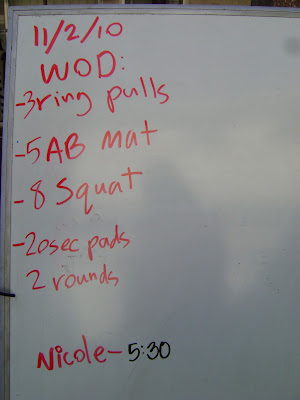 11/2/10
WOD:
-3ring pulls
-5 AB Mat
-8 Squat
-20sec pads
2 rounds
Nicole-5:30